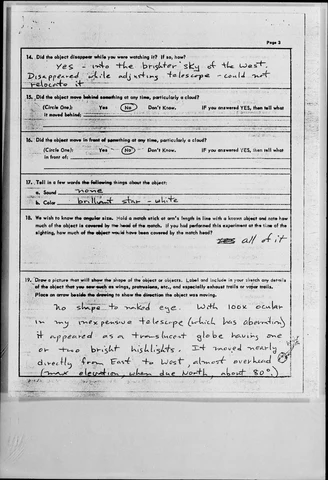 Page 3
14. Did the object disappear while you were watching it? If so, how?
Yes - into the brighter sky of the West.
Disappeared while adjusting telescope - could not
relocate it
15. Did the object move behind something at any time, particularly a cloud?
(Circle One): Yes No Don't Know. IF you answered YES, then tell what
it moved behind:
16. Did the object move in front of something at any time, particularly a cloud?
(Circle One): Yes No Don't Know. IF you answered YES, then tell what
in front of:
17. Tell in a few words the following things about the object:
a. Sound none
b. Color brilliant star - white
18. We wish to know the angular size. Hold a match stick at arm's length in line with a known object and note how
much of the object is covered by the head of the match. If you had performed this experiment at the time of the
sighting, how much of the object would have been covered by the match head?
all of it
19. Draw a picture that will show the shape of the object or objects. Label and include in your sketch any details
of the object that you saw such as wings, protrusions, etc., and especially exhaust trails or vapor trails.
Place an arrow beside the drawing to show the direction the object was moving.
No shape to naked eye. With 100X ocular
in my inexpensive telescope (which has aberration)
it appeared as a translucent globe having one
or two bright highlights. It moved nearly
directly from East to West, almost overhead
(max elevation, when due North, about 80°.)